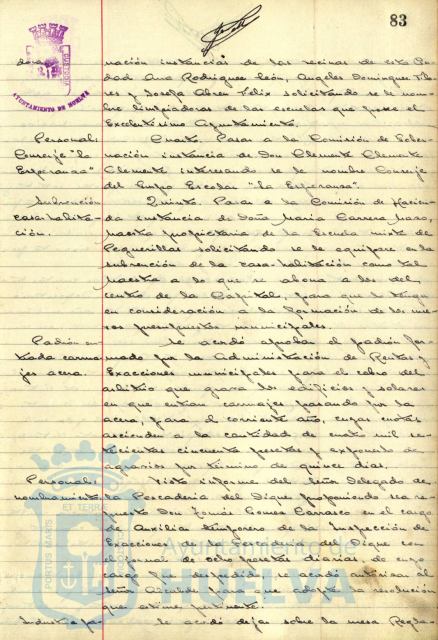 83
AYUNTAMIENTO DE HUELVA
doras
nación instancias de las vecinas de esta Ciu-
dad Ana Rodriguez León, Angeles Dominguez
y Josefa Abreu Felix solicitando se le nom-
bre limpiadoras de las escuelas que posee el
Excelentísimo Ayuntamiento.
Personal:
Conserje "La
Esperanza"
Cuarto. Pasar a la Comisión de Gober-
nación instancia de Don Clemente Clemente
Clemente interesando se le nombre Conserje
del Grupo Escolar "La Esperanza".
Subvención
casa habita-
ción.
Quinto. Pasar a la Comisión de Hacien-
da instancia de Doña Maria Carrera
Maestra propietaria de la Escuela mixta de
Peguerillas solicitando se le equipare en la
subvención de la casa habitación como tal
Maestra a lo que se abona a los del
centro de la Capital, para que se tenga
en consideración a la formación de los nue-
vos presupuestos municipales.
Padrón en-
trada carrua-
jes acera.
Se acordó aprobar el padrón for-
mado por la Administración de Rentas y
Exacciones municipales para el cobro del
arbitrio que grava los edificios y solares
en que entran carruajes pasando por la
acera, para el corriente año, cuyas cuotas
ascienden a la cantidad de cuatro mil se-
tecientas cincuenta pesetas y exponerlo de
agravios por término de quince dias.
Personal:
nombramiento
Visto informe del Señor Delegado de
la Pescaderia del Dique proponiendo sea re-
puesto Don Tomás Gomez Carrasco en el cargo
de Auxiliar temporero de la Inspección de
Exacciones de la Pescaderia del Dique con
el jornal de ocho pesetas diarias, de cuyo
cargo fue despedido, se acordó autorizar al
Señor Alcalde para que adopte la resolución
que estime pertinente.
Se acordó dejar sobre la mesa Regla-
PORTUS MARIS ET TERRAE CUSTODIA
Ayuntamiento de
HUELVA